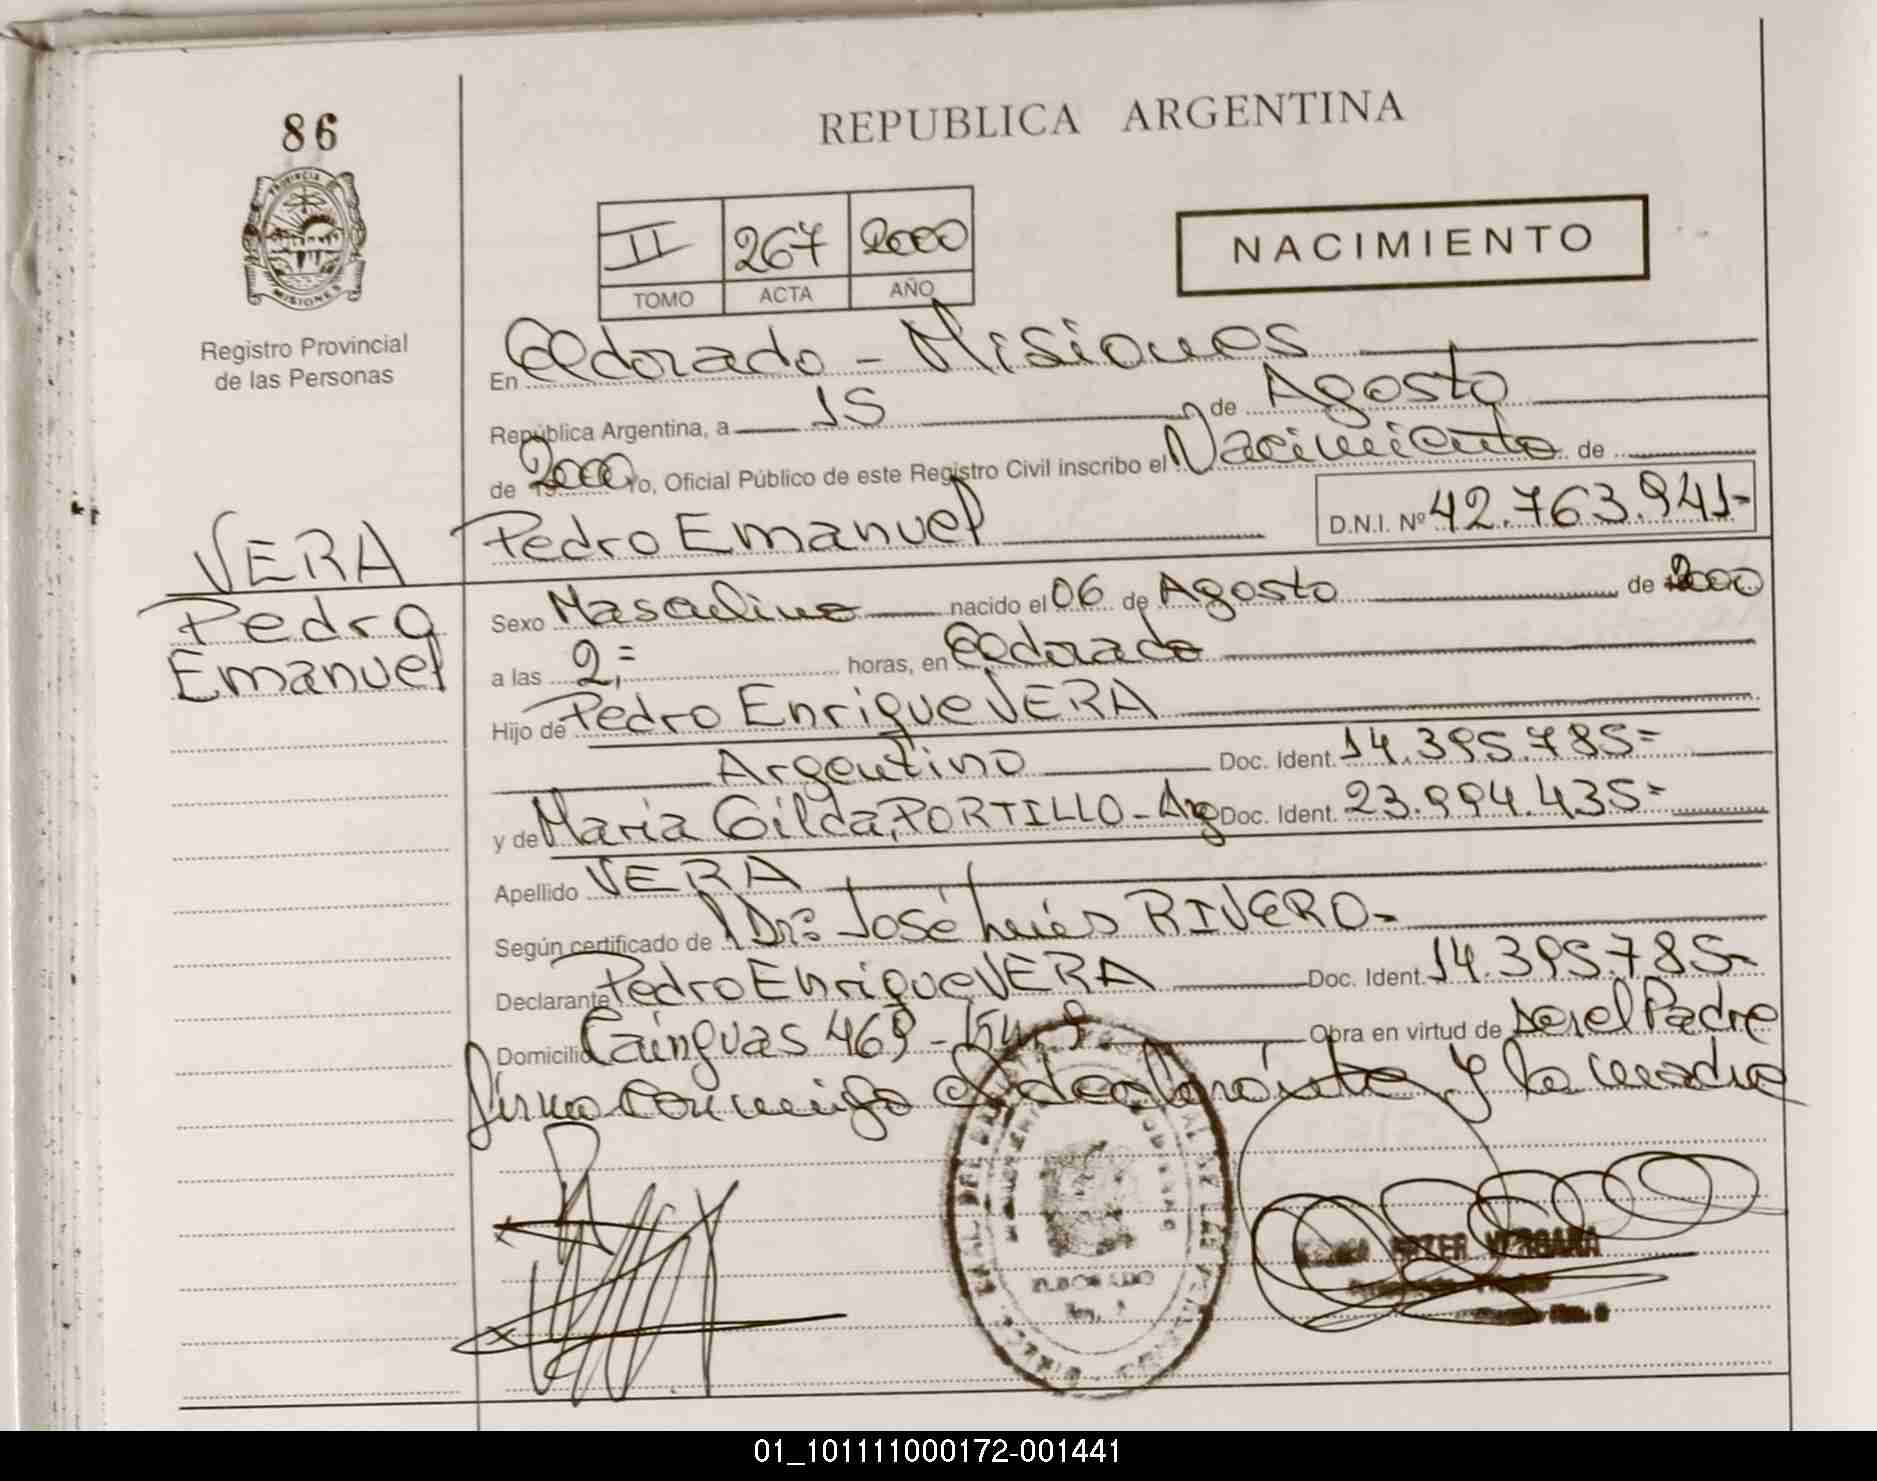 86
REPUBLICA ARGENTINA
PROVINCIA DE
MISIONES
Registro Provincial
de las Personas
II 267 2000
TOMO ACTA AÑO
NACIMIENTO
En Eldorado - Misiones
República Argentina, a 15 de Agosto
de 2000 Yo, Oficial Público de este Registro Civil inscribo el Nacimiento de
VERA
Pedro Emanuel
Pedro Emanuel D.N.I. Nº 42.763.941-
Sexo Masculino nacido el 06 de Agosto de 2000
a las 2,= horas, en Eldorado
Hijo de Pedro Enrique VERA
Argentino Doc. Ident. 14.395.785=
y de Maria Gilda, PORTILLO - Arg Doc. Ident. 23.994.435=
Apellido VERA
Según certificado de Dr: José Luis RIVERO-
Declarante Pedro Enrique VERA Doc. Ident. 14.395.785-
Domicilio Cainguas 469 - Km. 9 Obra en virtud de ser el Padre
firma conmigo el declarante y la madre
ELDORADO
VERGARA
01_101111000172-001441